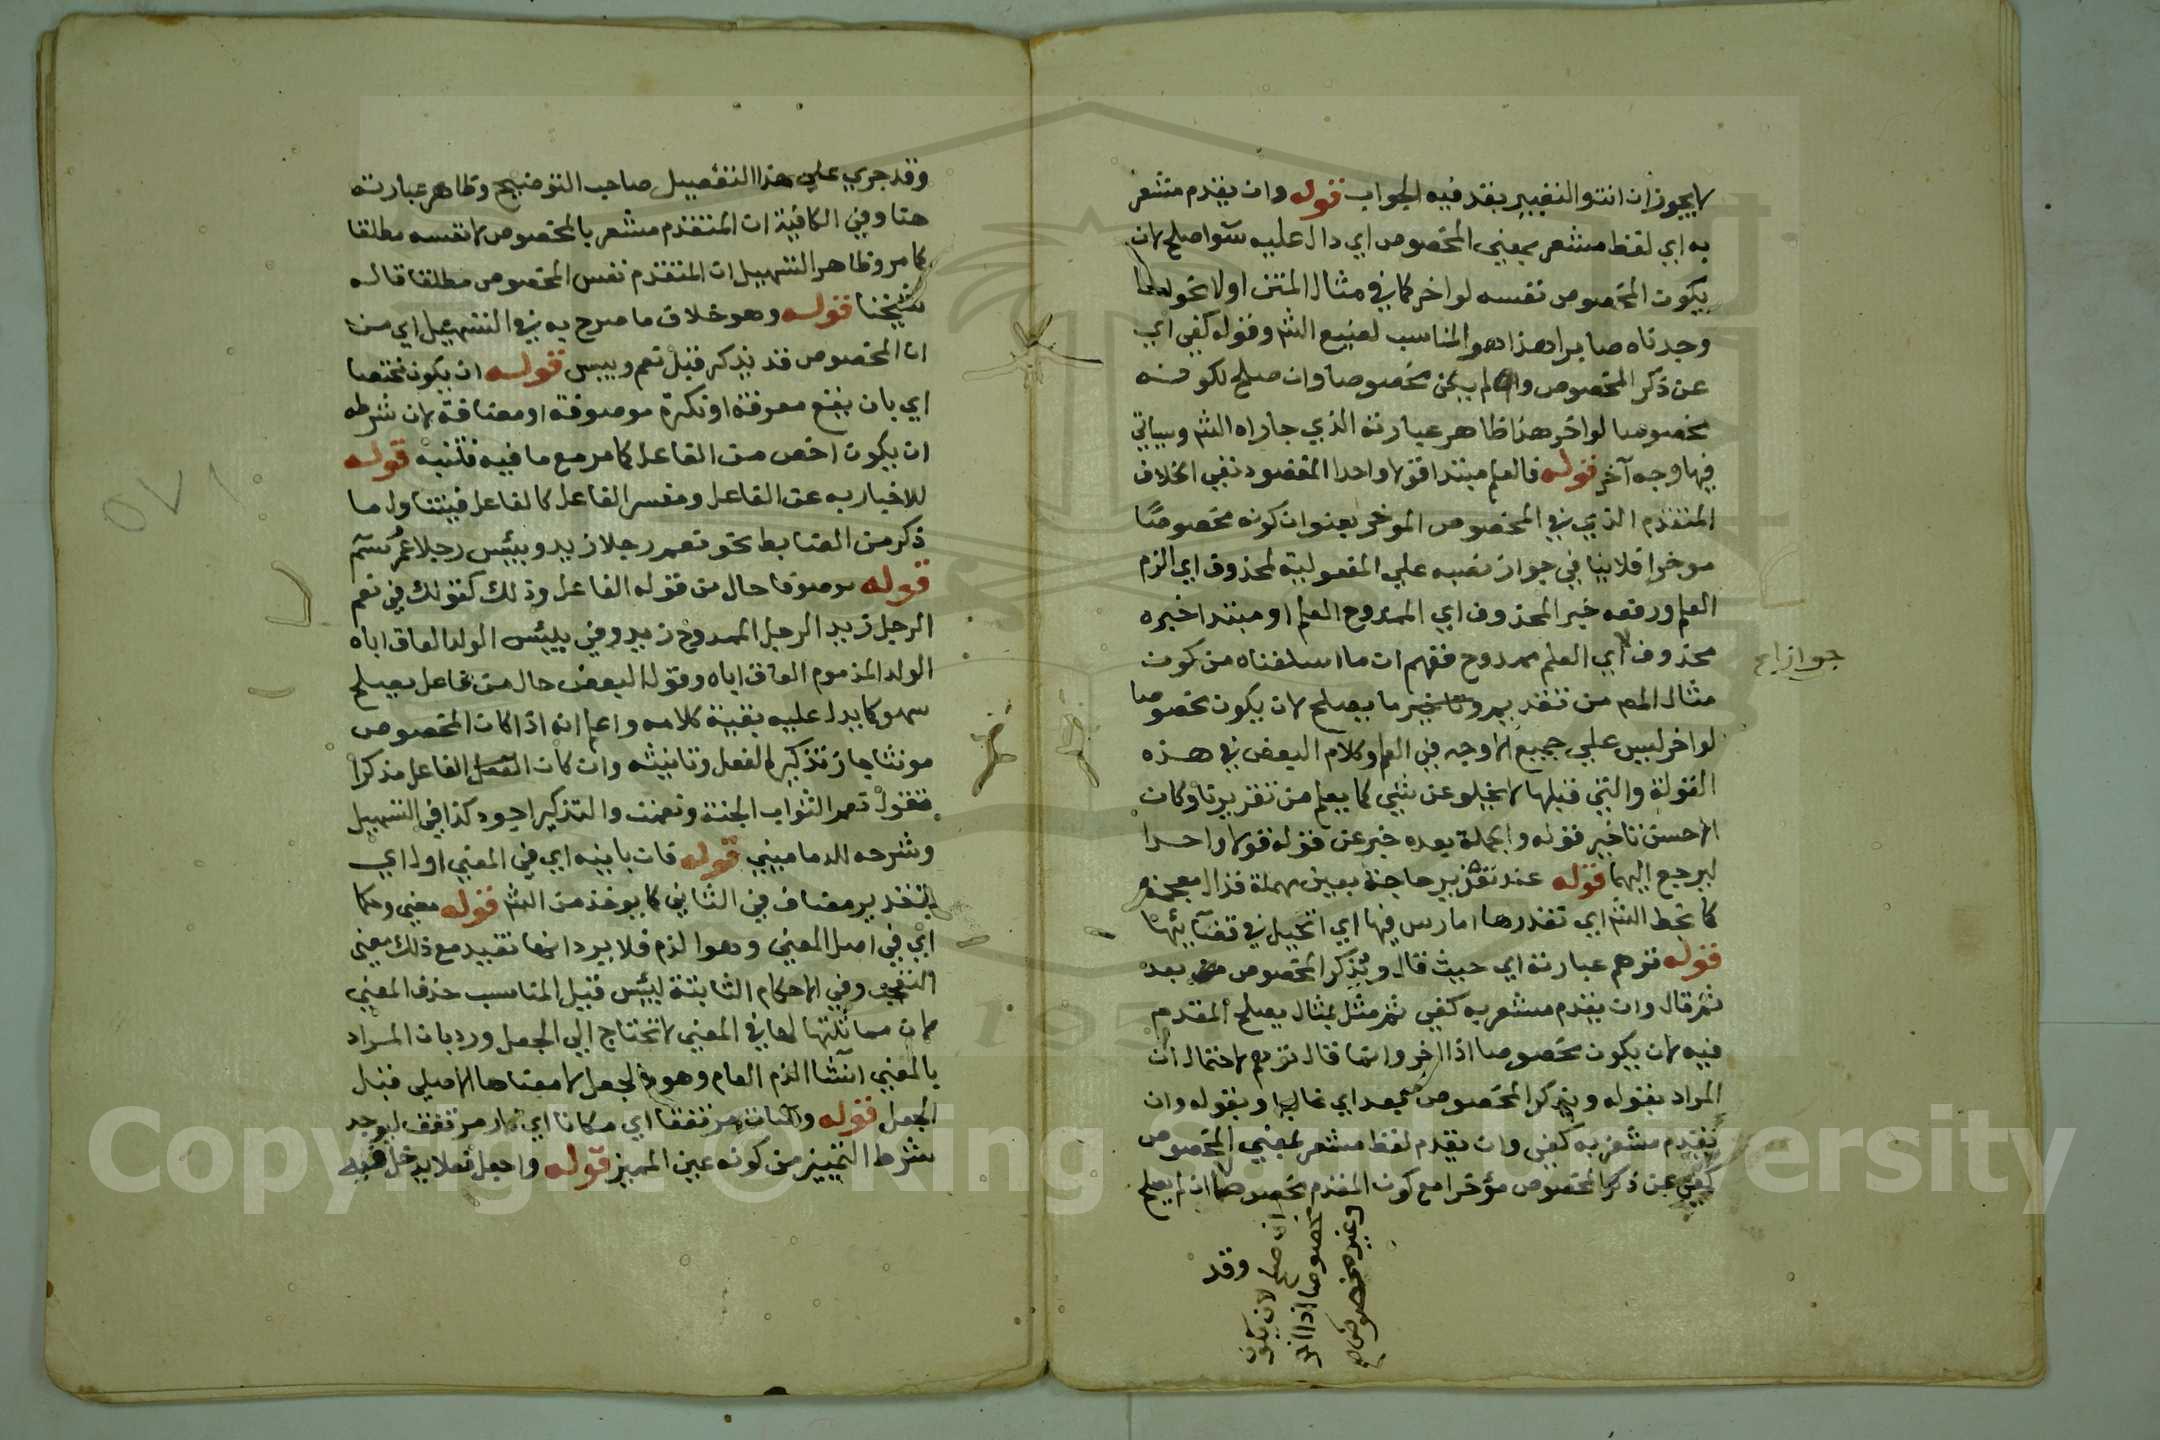 لايجوزان انتوالتغيير بقد فيه الجواب قوله وان يقدم مشعر
به اي لفظ مشعر بمعني المخصوص اي دال عليه سوا صلح لان
يكون المخصوص نفسه لواخر كما في مثال المتن اولا نحو
وجدناه صابرا هذا هو المناسب لصنيع الشم وقوله كفي اي
عن ذكر المخصوص وان لم يكن مخصوصا وان صلح لكونه
مخصوصا لواخر هذا ظاهر عبارته الذي جاراه الشم وسياتي
فيها وجه آخر قوله فالعلم مبتدا قولا واحدا المقصود نفي الخلاف
المتقدم الذي في المخصوص الموخر بعنوان كونه مخصوصا
موخرا فلا ينافي جواز نصبه علي المفعولية لمحذوف اي الزم
العلم ورفعه خبر المحذوف اي الممدوح العلم او مبتدا خبره
محذوف اي العلم ممدوح فقهم ان ما اسلفناه من كون
مثال المص من تقديم ما يصلح لان يكون مخصوصا
لواخر ليس علي جميع الاوجه في العلم وكلام البعض في هذه
القولة والتي قبلها لا يخلو عن شي كما يعلم من تقريرنا وكان
الاحسن تاخير قوله والجملة بعده خبر عن قوله قولا واحدا
ليرجع اليهما قوله عند تقذير حاجة بعين مهملة فذال معجمة
كما بخط الشم اي تعذرها امارس فيها اي اتحيل في قضائها
قوله توهم عبارته اي حيث قال ويذكر المخصوص بعد
ثم قال وان يقدم مشعر به كفي ثم مثل بمثال يصلح المقدم
فيه لان يكون مخصوصا اذا اخر وانما قال توهم لاحتمال ان
المراد بقوله ويذكر المخصوص بعد اي غالبا وبقوله وان
يقدم مشعر به كفي وان يقدم لفظ مشعر بمعني المخصوص
كفي عن ذكر المخصوص مؤخرا مع كون المقدم مخصوصا ان لم يصلح
جواز اخ
ان صلح لان يكون
مخصوصا اذا اخر
وغير مخصوص صح
وقد
وقد جري علي هذا التفصيل صاحب التوضيح وظاهر عبارته
هنا وفي الكافية ان المتقدم مشعر بالمخصوص لا نفسه مطلقا
كما مر وظاهر التسهيل ان المتقدم نفس المخصوص مطلقا قاله
شيخنا قوله وهو خلاف ما صرح به في التسهيل اي من
ان المخصوص قد يذكر قبل نعم وبيس قوله ان يكون مختصا
اي بان يقع معرفة او نكرة موصوفة او مضافة لان شرطه
ان يكون اخص من الفاعل كما مر مع ما فيه فتنبه قوله
للاخبار به عن الفاعل ومفسر الفاعل كالفاعل فيتناول ما
ذكر من الضابط نحو نعم رجلا زيد وبئس رجلا عمرو سم
قوله موصوفا حال من قوله الفاعل وذلك كقولك في نعم
الرجل زيد الرجل الممدوح زيد وفي بئس الولد العاق اباه
الولد المذموم العاق اباه وقول البعض حال من فاعل يصلح
سهو كما يدل عليه بقية كلامه واعلم انه اذا كان المخصوص
مونثا جاز تذكير الفعل وتانيثه وان كان الفاعل مذكرا
فتقول نعم الثواب الجنة ونعمت والتذكير اجود كذا في التسهيل
وشرحه للدماميني قوله فان باينه اي في المعني اول اي
بتقدير مضاف في الثاني كما يوخذ من الشم قوله معني وحكما
اي في اصل المعني وهو الذم فلا يرد انها تفيد مع ذلك معني
التعجب وفي الاحكام الثابتة لبئس قيل المناسب حذف المعني
لان مماثلتها لها في المعني لا تحتاج الي الجعل ورد بان المراد
بالمعني انشا الذم العام وهو في الجعل لا معناها الاصلي قبل
الجعل قوله مرتفقا اي مكانا اي نار مرتفق ليوجد
شرط التمييز من كونه عين المميز قوله واجعل فعلا يدخل فيه
Copyright © King Saud University